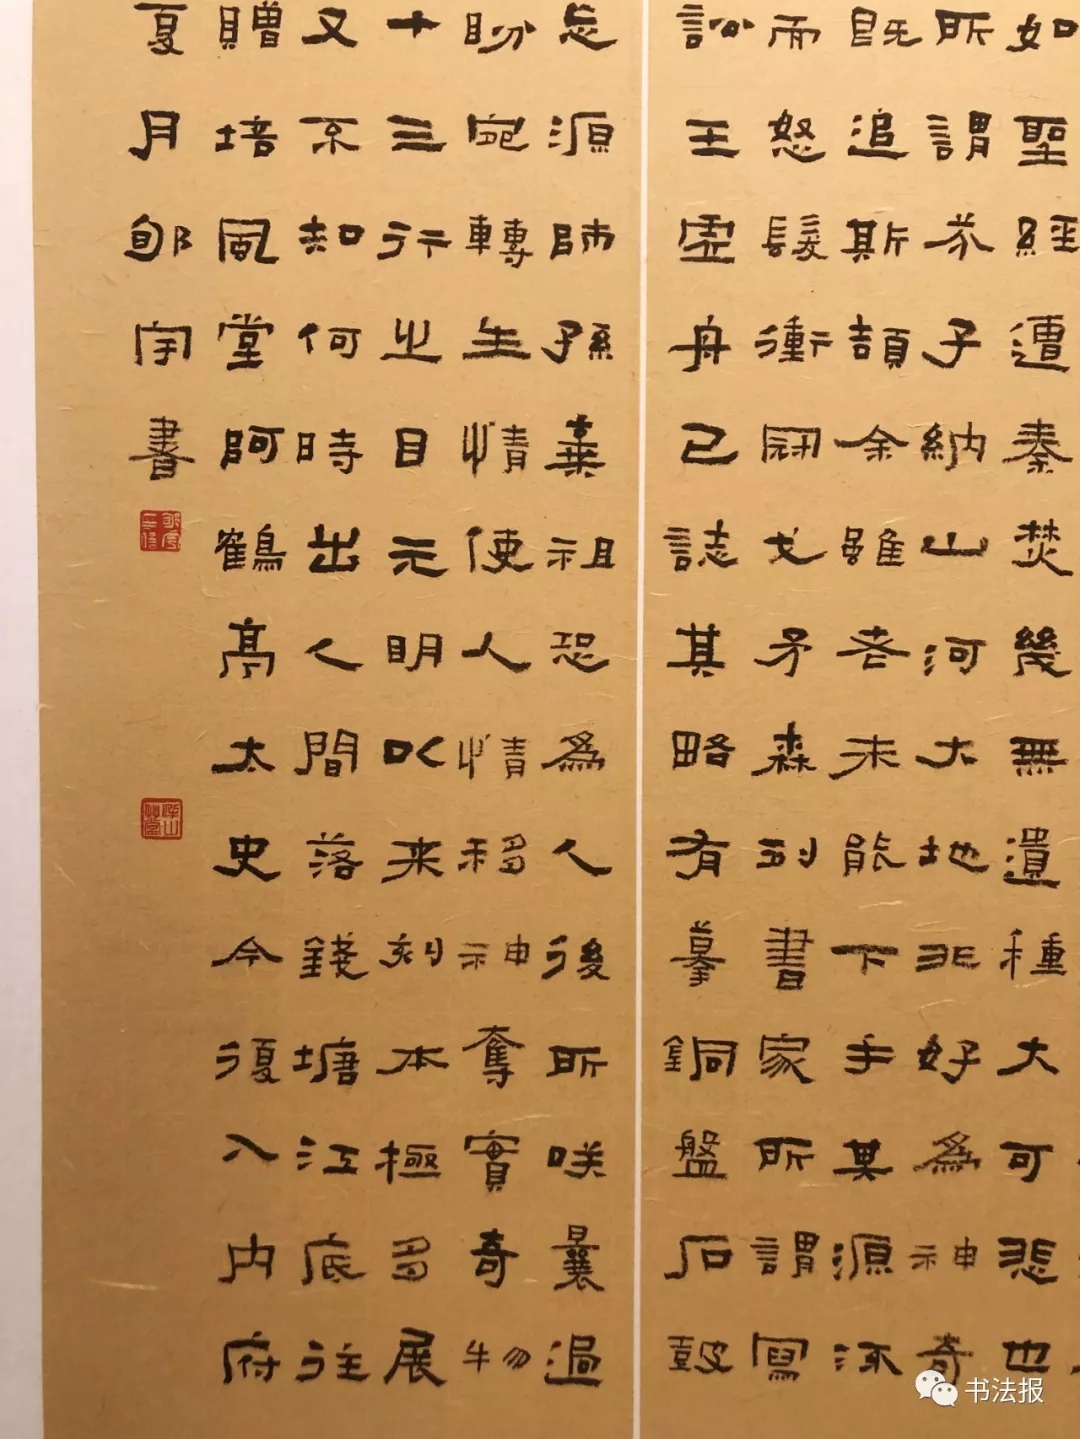 如聖經遭秦焚幾無遺種大可悲也
所謂芥子納山河大地非好為神奇
既追斯頡余雖老未能下手其源流
而怒髮衝冠戈矛森列書家所謂寫
訟王虛舟已誌其略有摹銅盤石鼓
忘源師孫棄祖恐為人後所咲曩過
盼宛轉生情使人情移神奪實奇物
十三行之目元明以来刻本極多展
又不知何時出人間落錢塘江底往
贈培風堂阿鶴亭太史今復入内府
夏月郇宇書
书法报